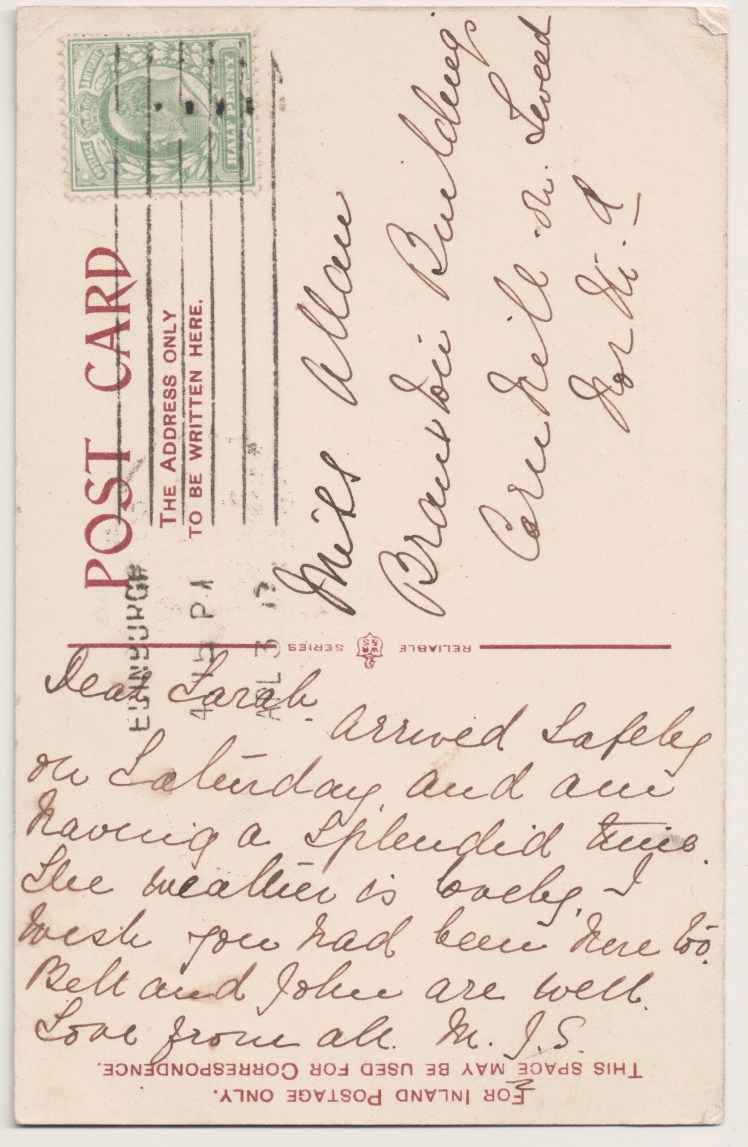 POST CARD
THE ADDRESS ONLY
TO BE WRITTEN HERE.
HALF PENNY
POSTAGE
REVENUE
EDINBURGH
4.15 PM
3
Miss Allan
Branxton Buildings
Cornhill-on-Tweed
RELIABLE WR&S SERIES
Dear Sarah
Arrived safely
on Saturday and am
having a splendid time.
The weather is lovely, I
wish you had been here too.
Bell and John are well.
Love from all. M. J. S.
THIS SPACE MAY BE USED FOR CORRESPONDENCE.
FOR INLAND POSTAGE ONLY.